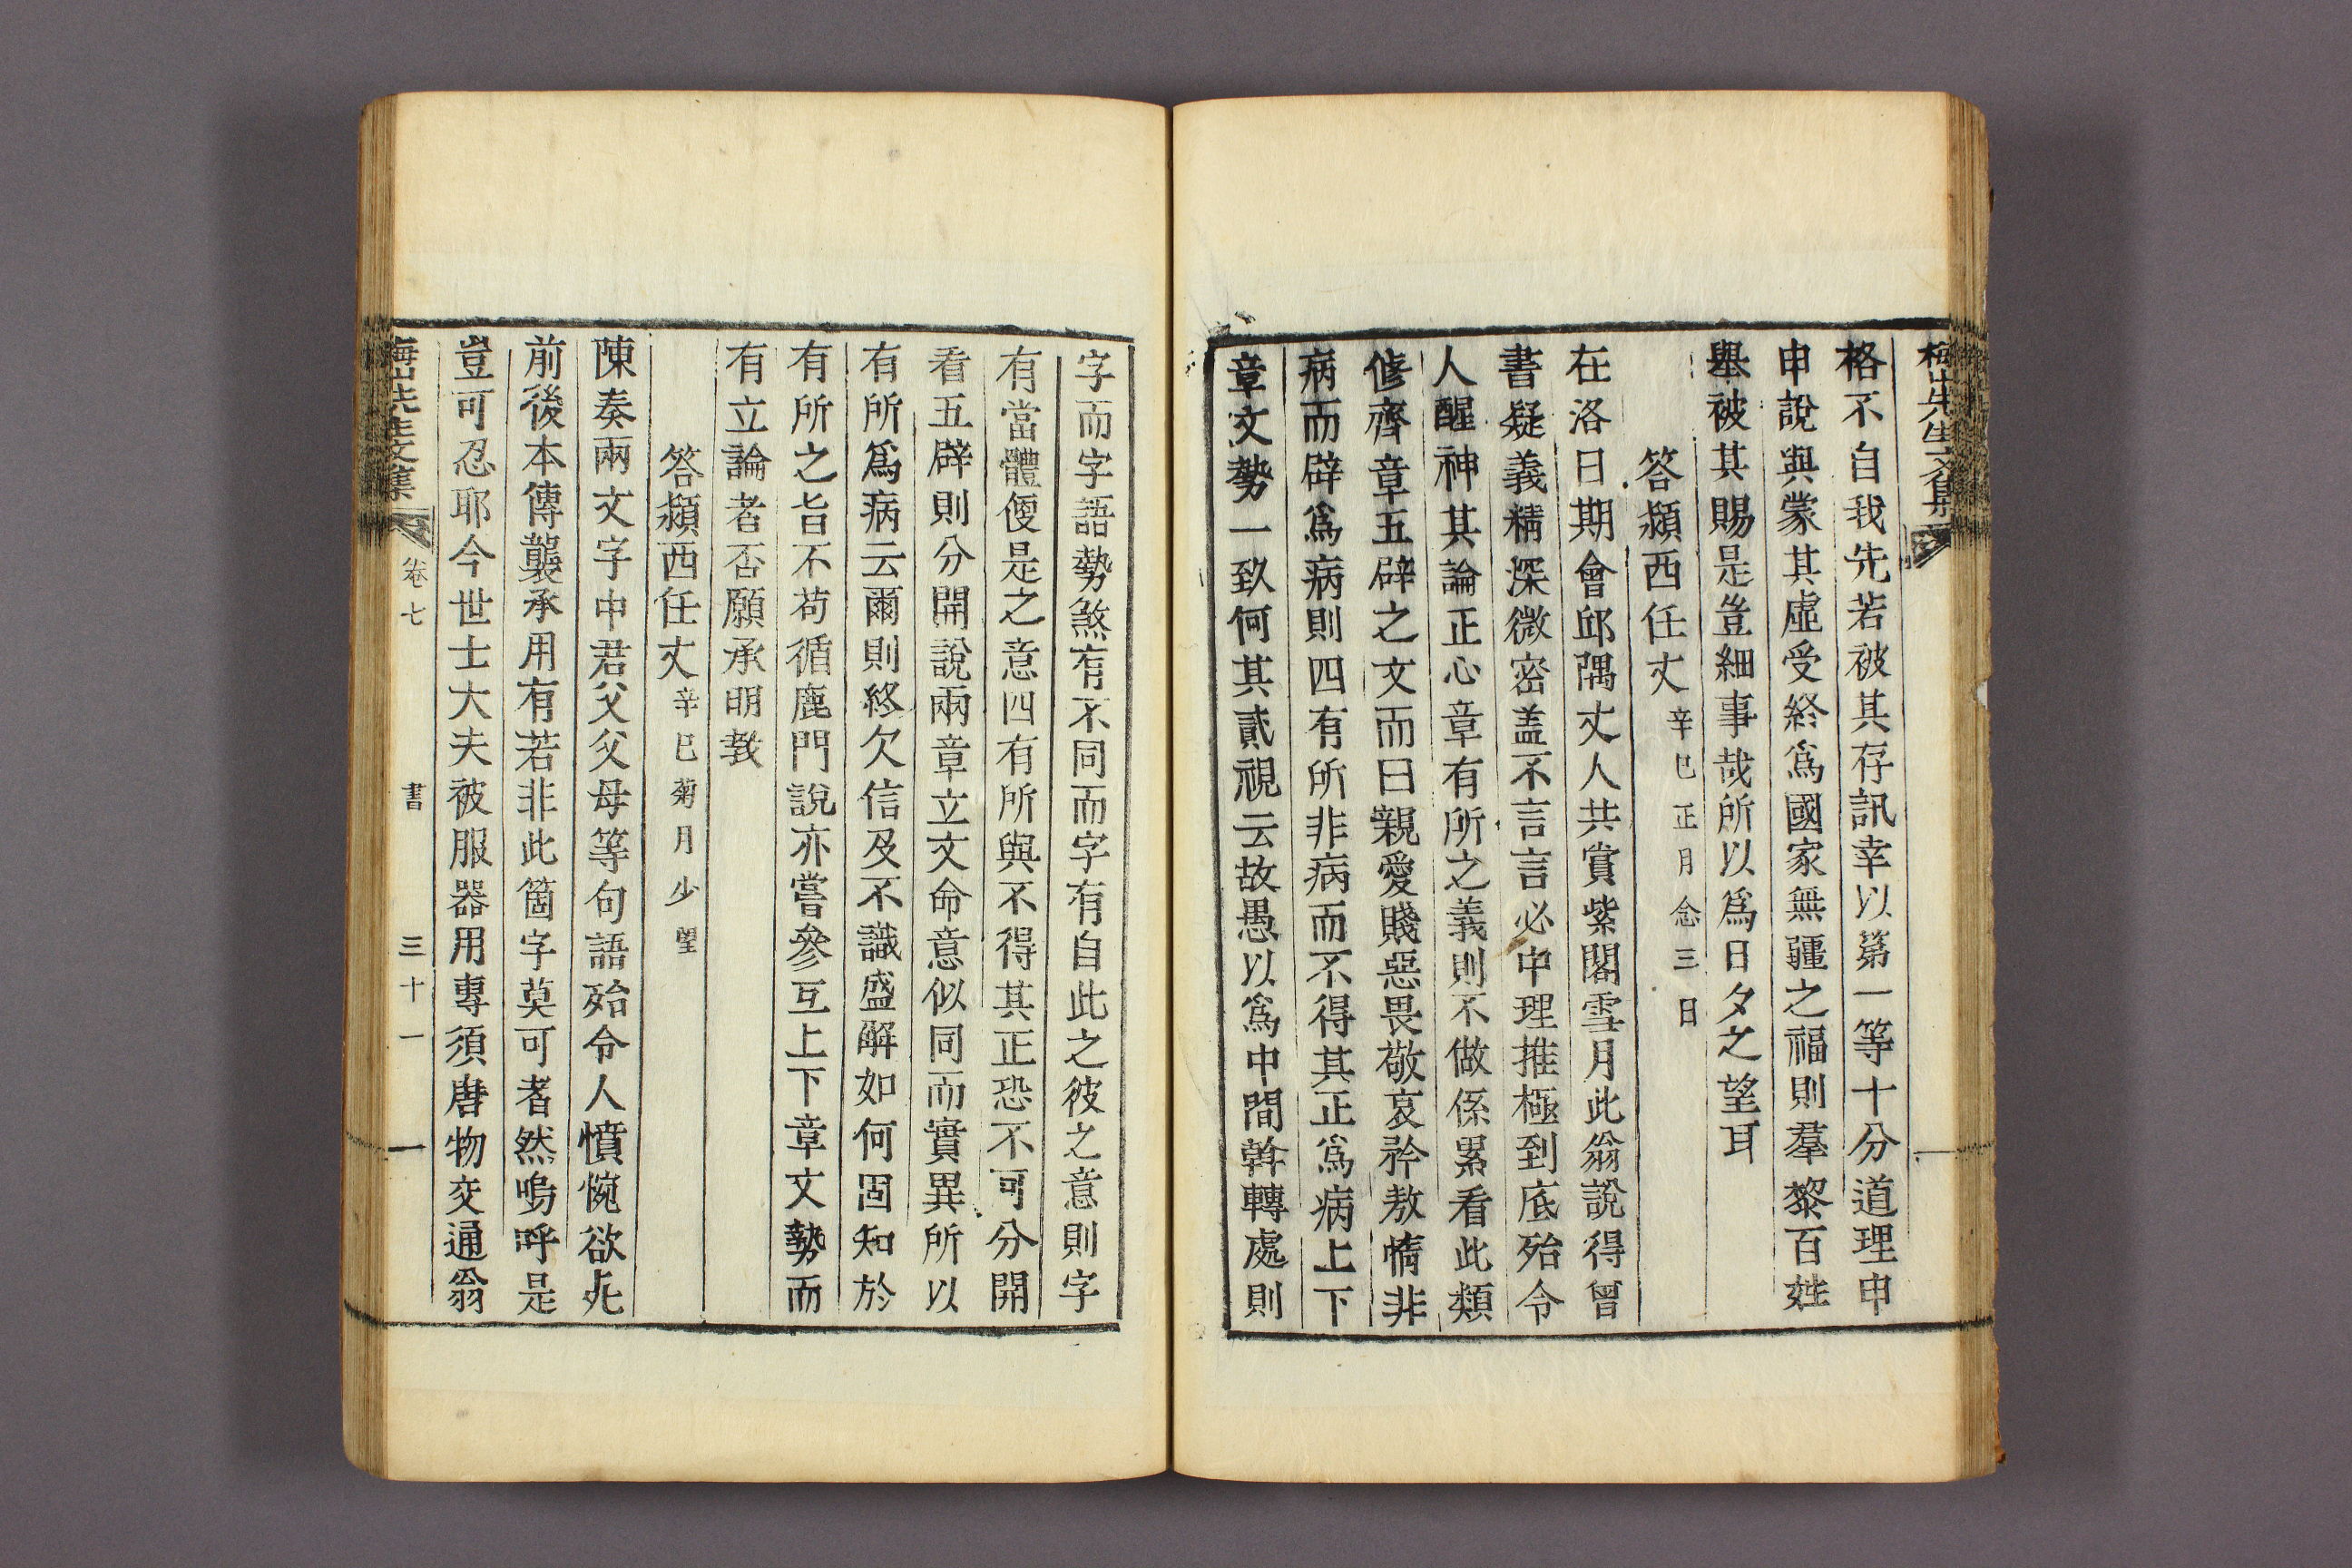 梅山先生文集
格不自我先若被其存訊幸以第一等十分道理申
申說與蒙其虛受終爲國家無疆之福則羣黎百姓
舉被其賜是豈細事哉所以爲日夕之望耳
答潁西任丈辛巳正月念三日
在洛日期會邱隅丈人共賞紫閣雪月此翁說得曾
書疑義精深微密盖不言言必中理推極到底殆令
人醒神其論正心章有所之義則不做係累看此類
修齊章五辟之文而曰親愛賤惡畏敬哀矜敖惰非
病而辟爲病則四有所非病而不得其正爲病上下
章文勢一致何其貳視云故愚以爲中間斡轉處則
字而字語勢煞有不同而字有自此之彼之意則字
有當體便是之意四有所與不得其正恐不可分開
看五辟則分開說兩章立文命意似同而實異所以
有所爲病云爾則終欠信及不識盛解如何固知於
有所之旨不苟循鹿門說亦嘗參互上下章文勢而
有立論者否願承明教
答潁西任丈辛巳菊月少望
陳奏兩文字中君父父母等句語殆令人憤惋欲死
前後本傳襲承用有若非此箇字莫可者然嗚呼是
豈可忍耶今世士大夫被服器用專須唐物交通翁
梅山先生文集 卷七 書 三十一